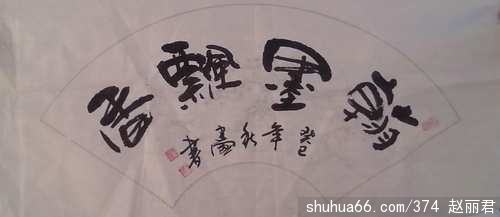 翰墨飄香
癸巳年秋 書
shuhua66.com/374 赵丽君